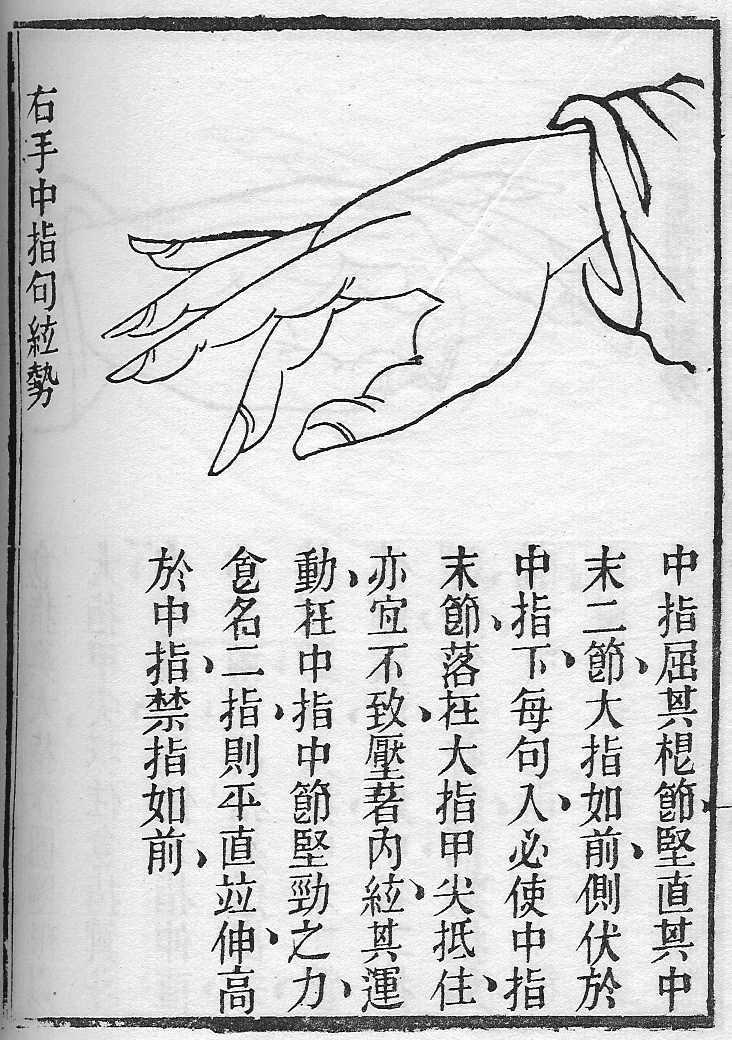 中指屈其棍節堅直其中
末二節、大指如前、側伏於
中指下、每句入、必使中指
末節、落在大指甲尖抵住、
亦宜不致、壓著內絃、其運
動、在中指中節堅勁之力、
食名二、指、則平直並伸、高
於中指、禁指如前、
右手中指句絃勢